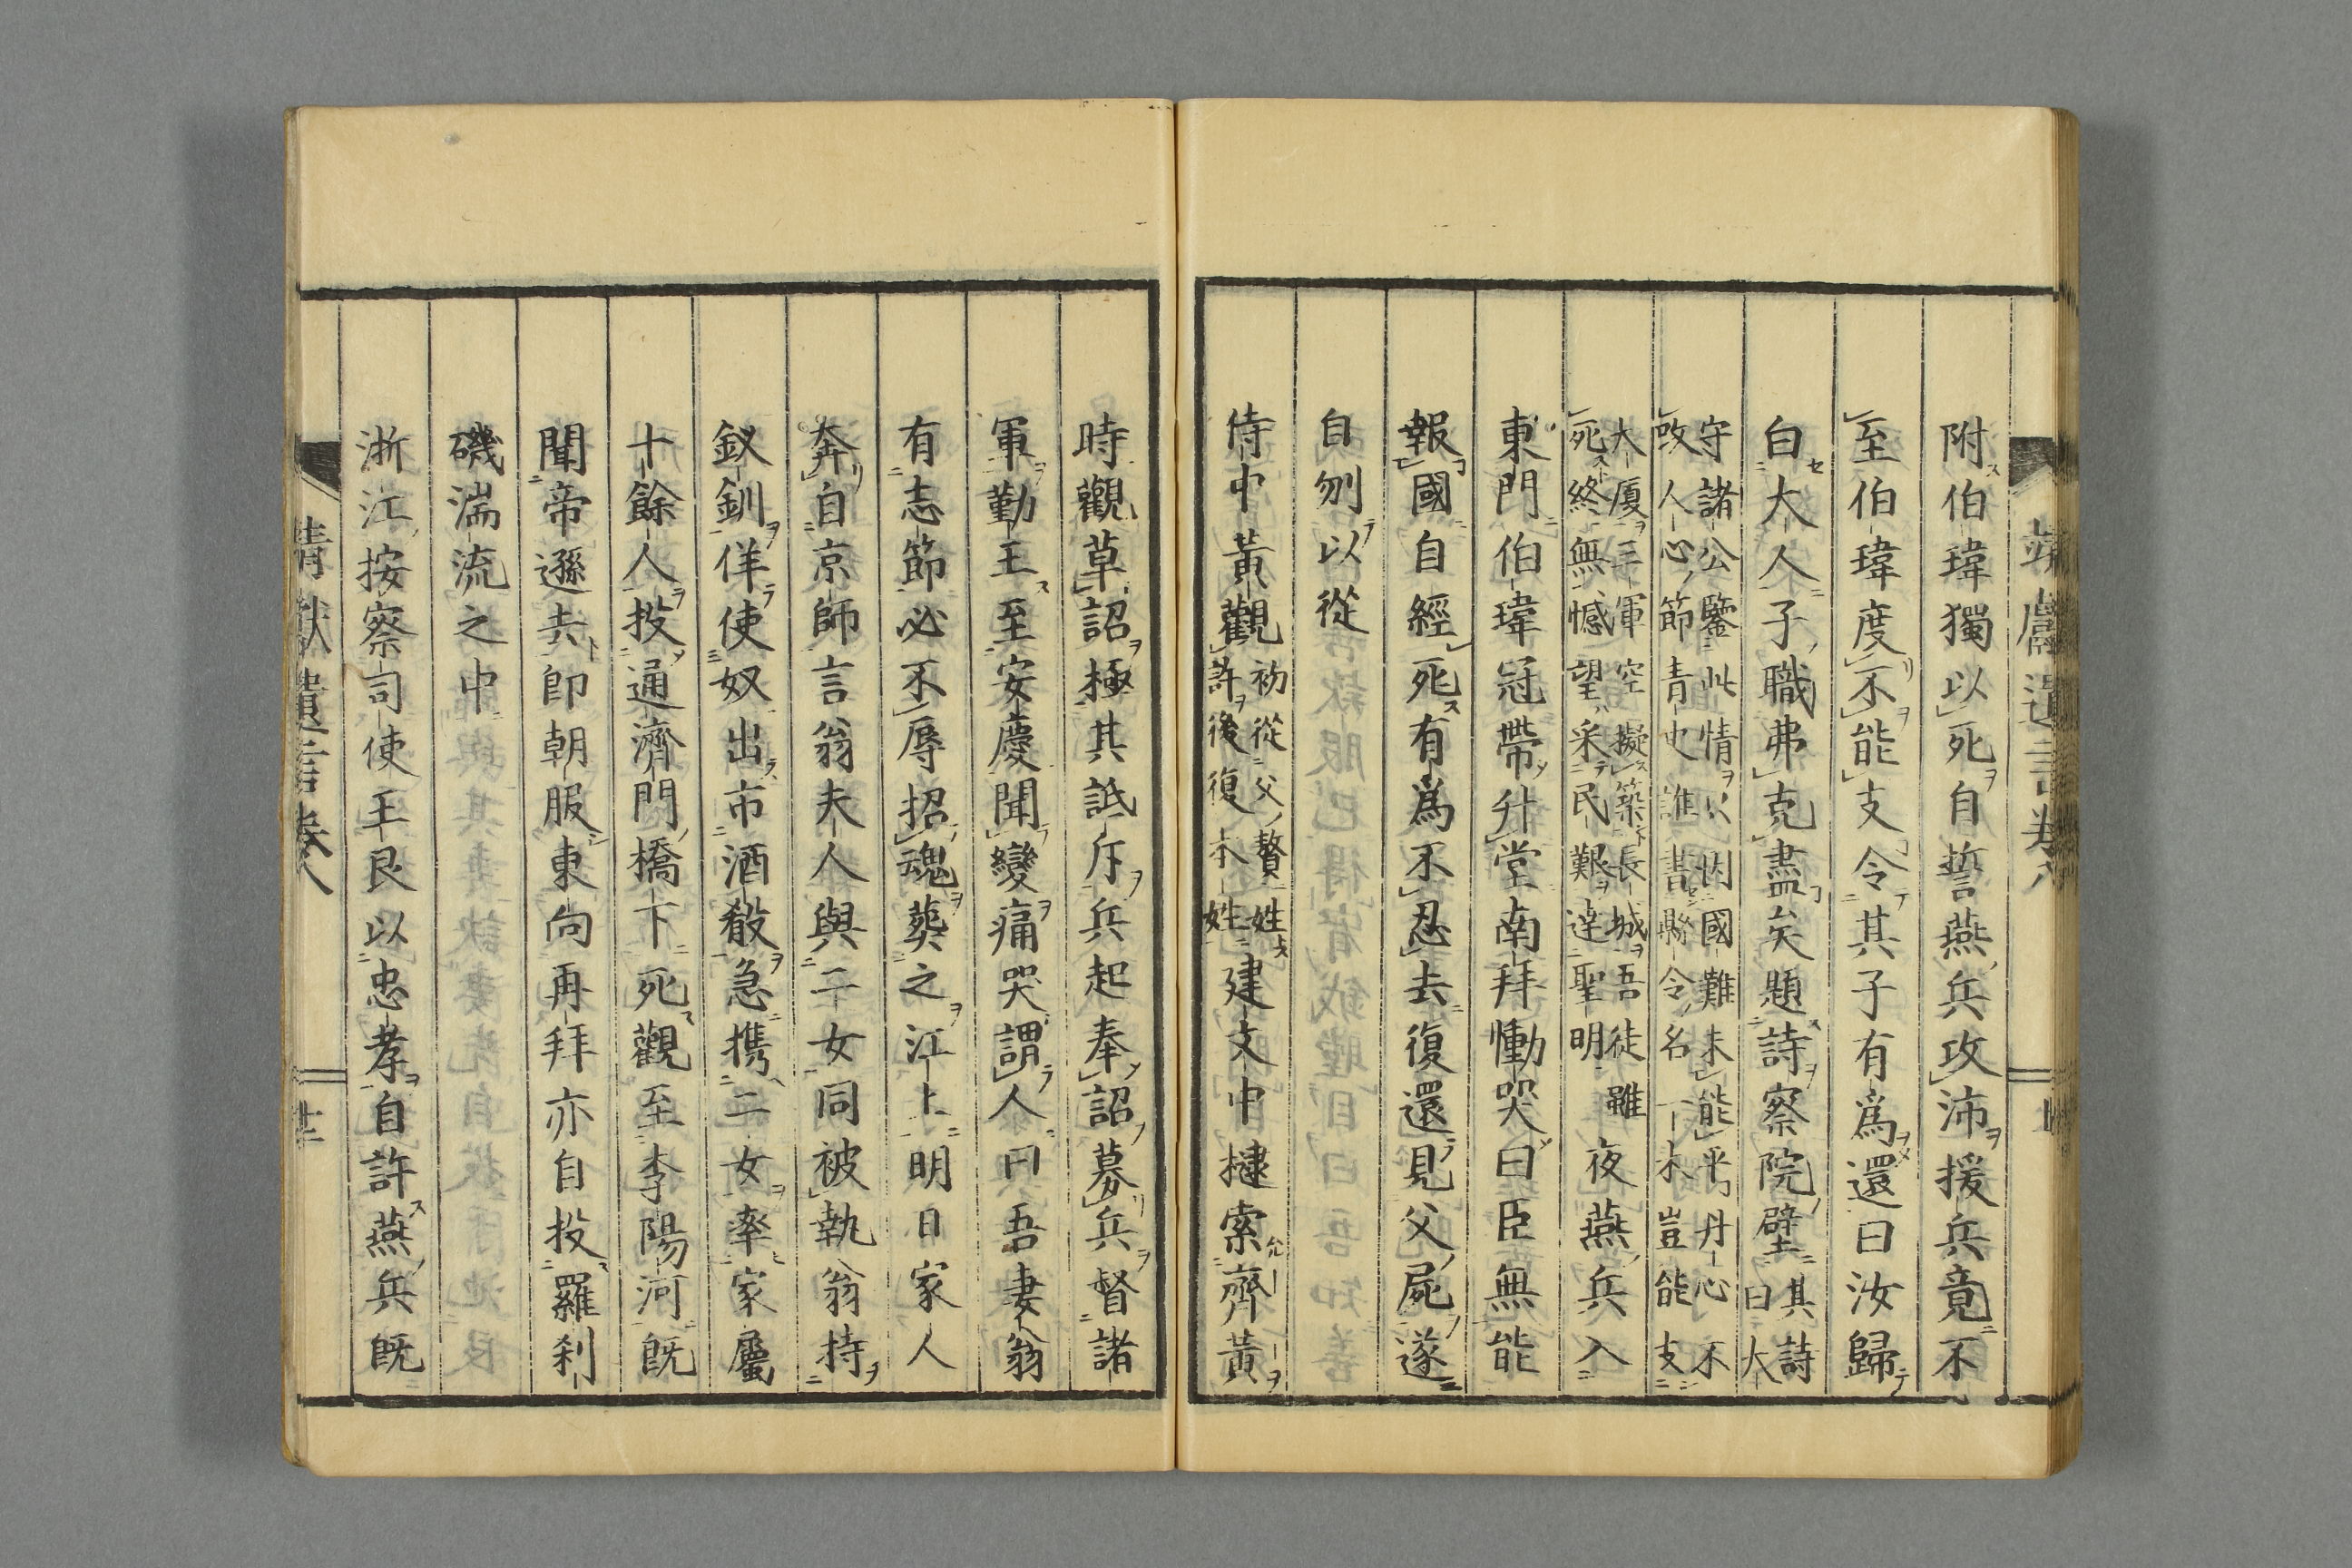 靖獻遺言卷八
附伯瑋獨以死自誓燕兵攻沛援兵竟不
至伯瑋度不能支令其子有爲還曰汝歸
白大人子職弗克盡矣題詩察院壁其詩曰大
守諸公鑒此情只因國難未能平丹心不
改人心節青史誰書縣令名一木豈能支
大厦三軍空擬築長城吾徒雖
死終無憾望采民艱達聖明夜燕兵入
東門伯瑋冠帶升堂南拜慟哭曰臣無能
報國自經死有爲不忍去復還見父屍遂
自刎以從
侍中黃觀初從父贅姓許後復本姓建文中索齊黃
時觀草詔極其詆斥兵起奉詔募兵督諸
軍勤王至安慶聞變痛哭謂人曰吾妻翁
有志節必不辱招魂葬之江上明日家人
奔自京師言翁夫人與二女同被執翁持
釵釧佯使奴出市酒殽急携二女率家屬
十餘人投通濟門橋下死觀至李陽河既
聞帝遜去即朝服東向再拜亦自投羅刹
磯湍流之中
浙江按察司使王良以忠孝自許燕兵既
靖獻遺言卷八
廿